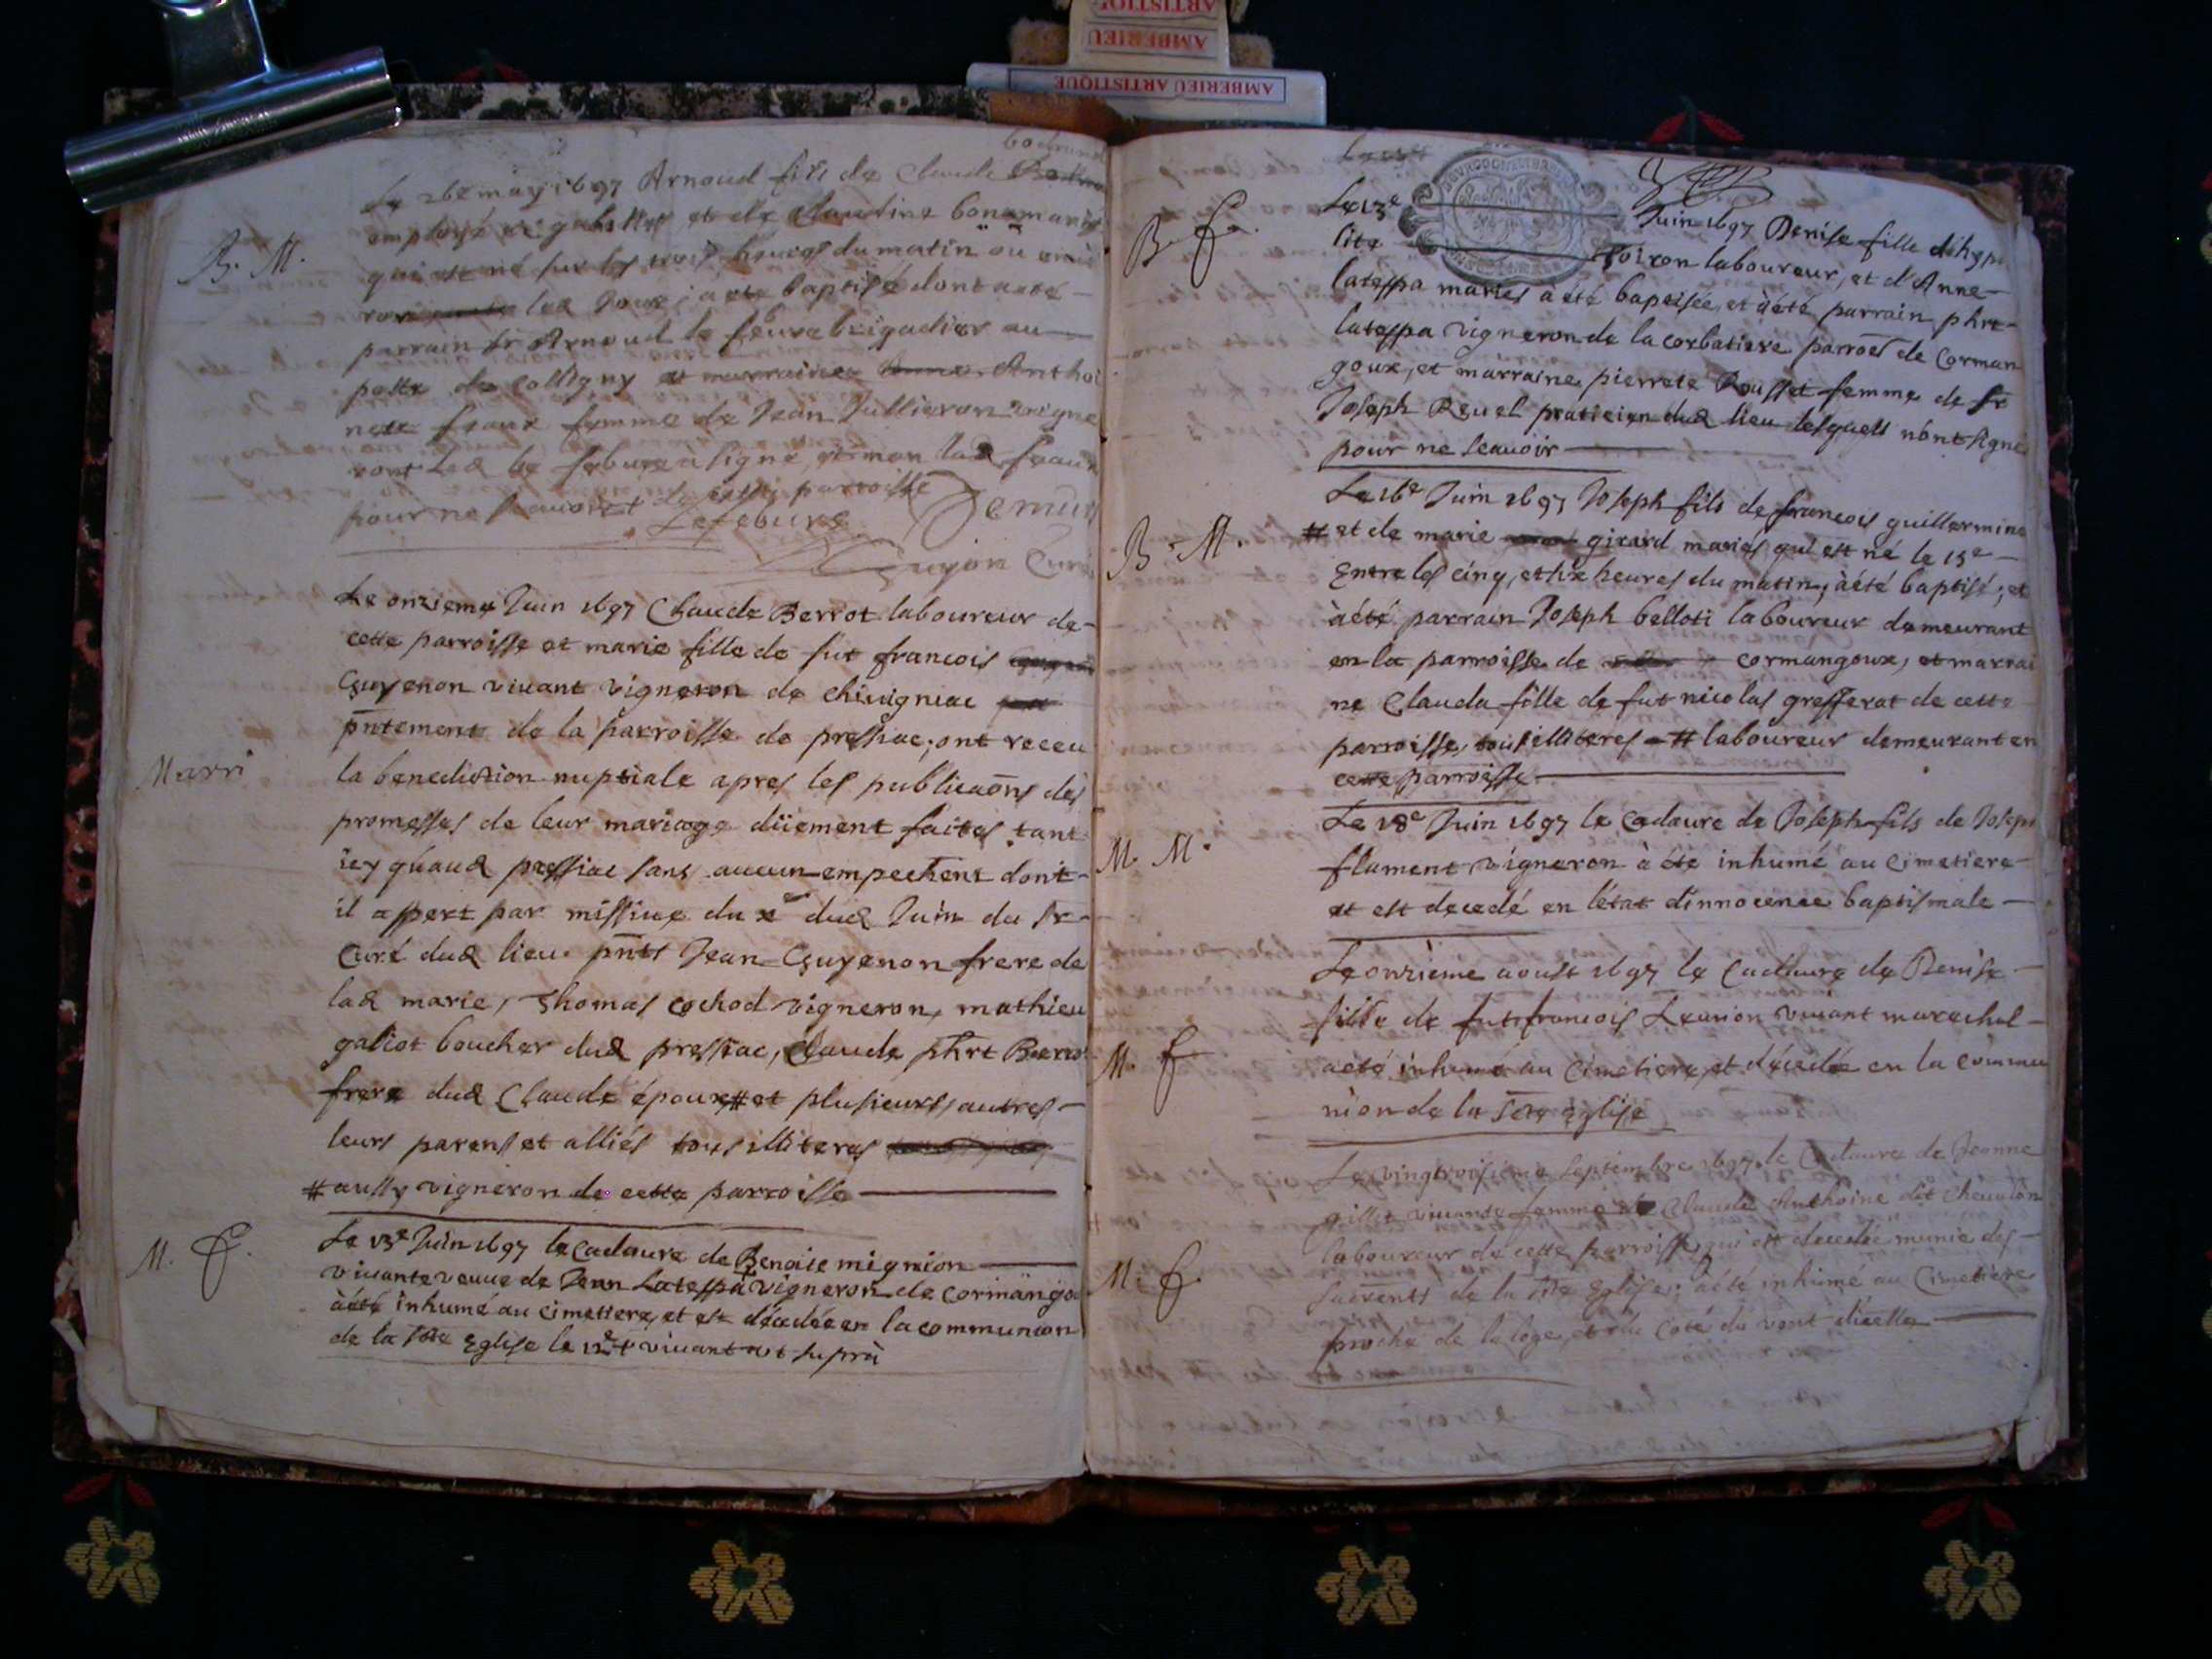 ARTISTIQUE
AMBERIEU
AMBERIEU ARTISTIQUE
Le 26e may 1697 Arnoud fils de Claude
employé et de Claudine
B. M.
qui est né sur les trois heures du matin ou
led Jour, a eté baptisé dont a eté
parrain sr Arnoud le feure brigadier au
poste de colligny et marraine Anthoi
nete femme de Jean Jullieron vigne
ront led le febure a signé et non lad
pour ne scauoir de cette parroisse
Lefebure
Guyon Curé
Le onzieme Juin 1697 Claude Berrot laboureur de
cette parroisse et marie fille de fut francois
Guyenon viuant vigneron de chiuigniac
pntement de la parroisse de pressiac, ont receu
Marri
la benediction nuptiale apres les publicaons des
promesses de leur mariage düement faites tant
icy qu'aud pressiac sans aucun empechent dont
il appert par missiue du x dud Juin du sr
Curé dud lieu pnts Jean Guyenon frere de
lad marie, Thomas cochod vigneron, mathieu
galiot boucher dud pressiac, Claude phrt Berro
frere dud Claude époux # et plusieurs autres
leurs parens et alliés tous illiteres
# aussy vigneron de cette parroisse
M. f.
Le 13e Juin 1697 le Cadaure de Benoite mignion
viuante veuue de Jean Latesspa vigneron de cormango
à été inhumé au cimetiere, et est décedée en la communion
de la ste Eglise le 12e viuant ut suprà
B. f.
Le 13e Juin 1697 Denise fille d'hypo
lite Poiron laboureur, et d'Anne
latesspa mariés à été baptisée, et à été parrain phrt
latesspa vigneron de la corbatiere parroe de Corman
goux, et marraine pierrete Rousset femme de sr
Joseph Reuel praticien dud lieu lesquels n'ont signé
pour ne scauoir
Le 16e Juin 1697 Joseph fils de francois guillermine
B. M.
# et de marie girard mariés qui est né le 15e
Entre les cinq, et six heures du matin, à été baptisé, et
à été parrain Joseph belloti laboureur demeurant
en la parroisse de cormangoux, et marrai
ne Clauda fille de fut nicolas grefferat de cette
parroisse, tous illiteres # laboureur demeurant en
cette parroisse
Le 18e Juin 1697 le Cadaure de Joseph fils de Joseph
M. M.
flament vigneron à été inhumé au cimetiere
et est decedé en l'état d'innocence baptismale
Le onzieme aoust 1697 le Cadaure de Denise
fille de fut francois Leurion viuant marechal
M. f.
a été inhumé au Cimetiere, et décedée en la commu
nion de la Ste eglise
Le vingtroisieme Septembre 1697 le Cadaure de Jeanne
gillet viuante femme de Claude Anthoine dit cheualon
laboureur de cette parroisse, qui est decedée munie des
M. f.
sacrents de la Ste Eglise, à été inhumé au Cimetiere
proche de la loge, et du coté du vent d'icelle